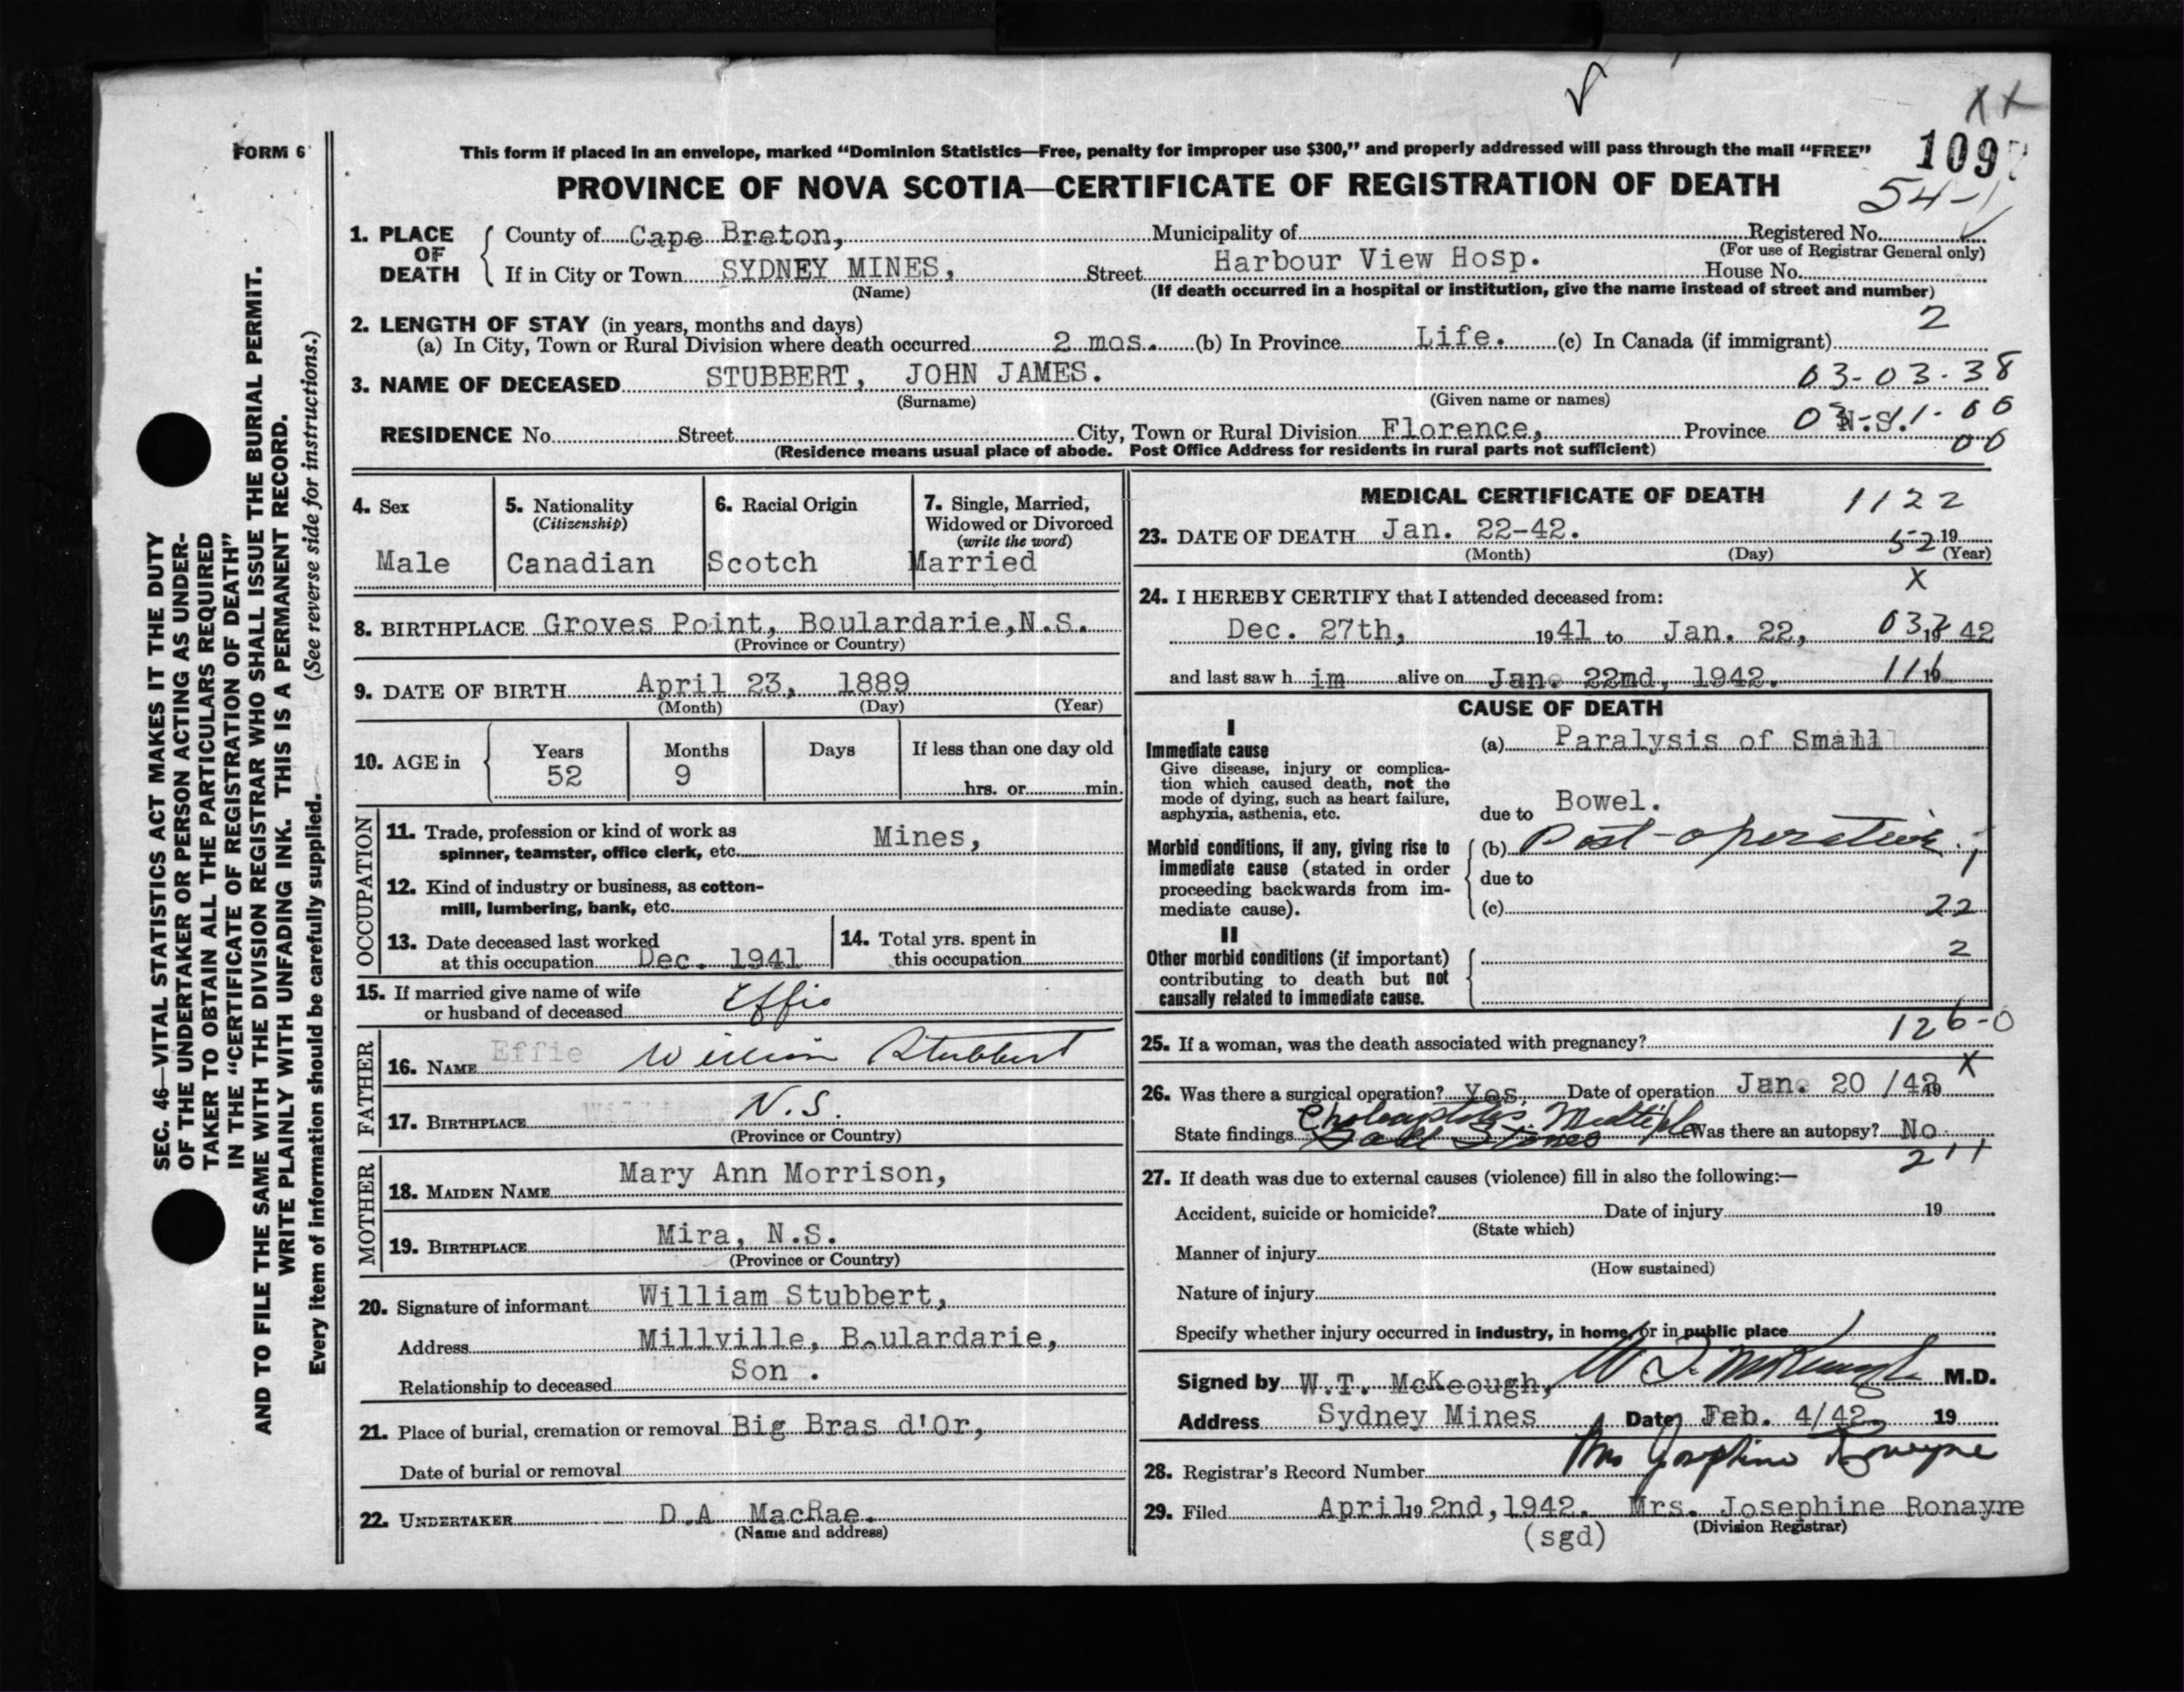 FORM 6
This form if placed in an envelope, marked "Dominion Statistics—Free, penalty for improper use $300," and properly addressed will pass through the mail "FREE"
109
54-1
PROVINCE OF NOVA SCOTIA—CERTIFICATE OF REGISTRATION OF DEATH
1. PLACE OF DEATH
County of Cape Breton, Municipality of Registered No.
(For use of Registrar General only)
If in City or Town SYDNEY MINES, Street Harbour View Hosp. House No.
(Name) (If death occurred in a hospital or institution, give the name instead of street and number)
2. LENGTH OF STAY (in years, months and days) 2
(a) In City, Town or Rural Division where death occurred 2 mos. (b) In Province Life. (c) In Canada (if immigrant)
3. NAME OF DECEASED STUBBERT, JOHN JAMES. 03-03-38
(Surname) (Given name or names)
RESIDENCE No. Street City, Town or Rural Division Florence, Province N.S.
00
(Residence means usual place of abode. Post Office Address for residents in rural parts not sufficient)
4. Sex Male
5. Nationality (Citizenship) Canadian
6. Racial Origin Scotch
7. Single, Married, Widowed or Divorced (write the word) Married
8. BIRTHPLACE Groves Point, Boulardarie, N.S.
(Province or Country)
9. DATE OF BIRTH April 23, 1889
(Month) (Day) (Year)
10. AGE in Years 52 Months 9 Days If less than one day old hrs. or min.
OCCUPATION
11. Trade, profession or kind of work as spinner, teamster, office clerk, etc. Mines,
12. Kind of industry or business, as cotton-mill, lumbering, bank, etc.
13. Date deceased last worked at this occupation Dec. 1941
14. Total yrs. spent in this occupation
15. If married give name of wife or husband of deceased Effie
FATHER
16. NAME Effie William Stubbert
17. BIRTHPLACE N.S.
(Province or Country)
MOTHER
18. MAIDEN NAME Mary Ann Morrison,
19. BIRTHPLACE Mira, N.S.
(Province or Country)
20. Signature of informant William Stubbert,
Address Millville, Boulardarie,
Relationship to deceased Son .
21. Place of burial, cremation or removal Big Bras d'Or,
Date of burial or removal
22. UNDERTAKER D.A MacRae.
(Name and address)
MEDICAL CERTIFICATE OF DEATH 1122
23. DATE OF DEATH Jan. 22-42. 52 19
(Month) (Day) (Year)
X
24. I HEREBY CERTIFY that I attended deceased from:
Dec. 27th, 1941 to Jan. 22, 19 42
and last saw h im alive on Jan. 22nd, 1942. 19
CAUSE OF DEATH
I
Immediate cause
Give disease, injury or complication which caused death, not the mode of dying, such as heart failure, asphyxia, asthenia, etc.
(a) Paralysis of Small
due to Bowel.
Morbid conditions, if any, giving rise to immediate cause (stated in order proceeding backwards from immediate cause).
(b) Post-operative
due to
(c) 22
II
Other morbid conditions (if important) contributing to death but not causally related to immediate cause.
2
126-0
25. If a woman, was the death associated with pregnancy?
X
26. Was there a surgical operation? Yes. Date of operation Jan. 20 /42 19
State findings Multiple Gall Stones Was there an autopsy? No.
211
27. If death was due to external causes (violence) fill in also the following:—
Accident, suicide or homicide? Date of injury 19
(State which)
Manner of injury
(How sustained)
Nature of injury
Specify whether injury occurred in industry, in home, or in public place
Signed by W.T. McKeough, W T McKeough M.D.
Address Sydney Mines Date Feb. 4/42. 19
Mrs Josephine Ronayne
28. Registrar's Record Number
29. Filed April 19 2nd, 1942. Mrs. Josephine Ronayne
(sgd) (Division Registrar)
SEC. 46—VITAL STATISTICS ACT MAKES IT THE DUTY
OF THE UNDERTAKER OR PERSON ACTING AS UNDER-
TAKER TO OBTAIN ALL THE PARTICULARS REQUIRED
IN THE "CERTIFICATE OF REGISTRATION OF DEATH"
AND TO FILE THE SAME WITH THE DIVISION REGISTRAR WHO SHALL ISSUE THE BURIAL PERMIT.
WRITE PLAINLY WITH UNFADING INK. THIS IS A PERMANENT RECORD.
Every item of information should be carefully supplied. (See reverse side for instructions.)